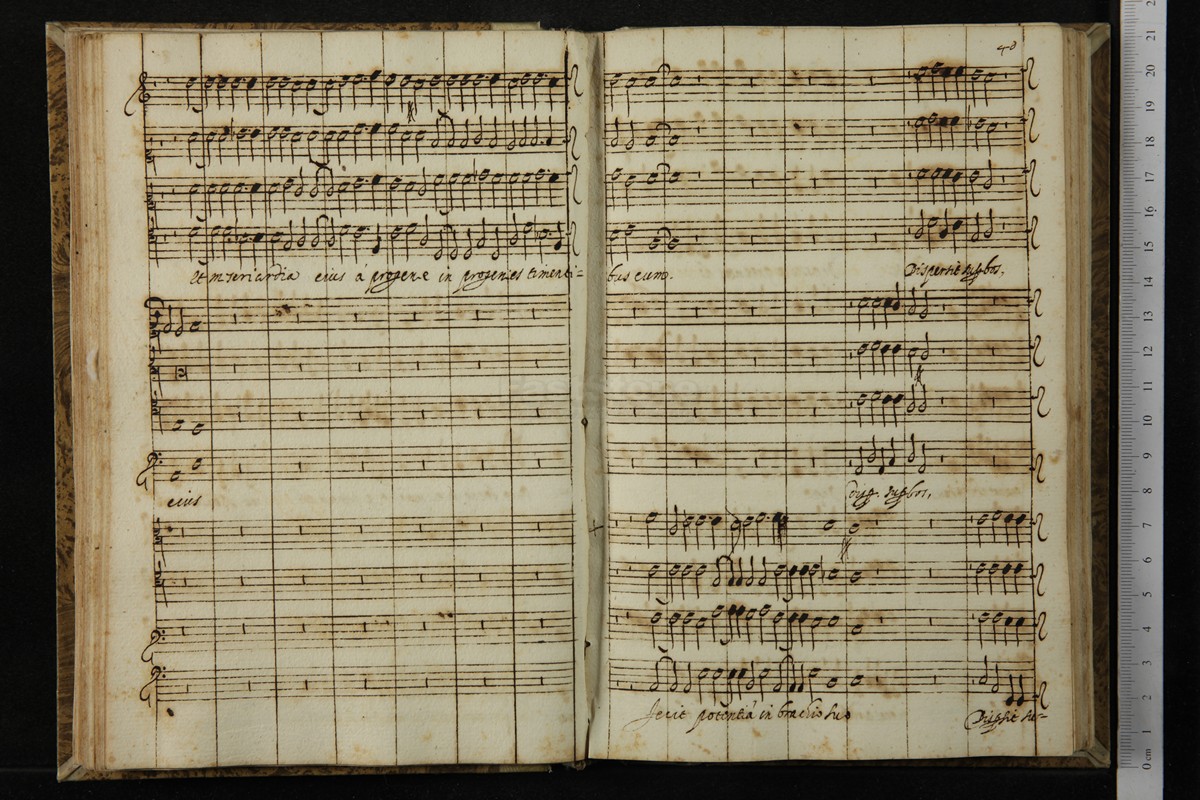 et misericordia eius a progen-e in progen.es timenti-
eius
40
bus eum.
Dispersit supbos,
disp. supbos,
fecit potentiā in brachio suo
Disp̄sit su-
0 cm 1 2 3 4 5 6 7 8 9 10 11 12 13 14 15 16 17 18 19 20 21 2